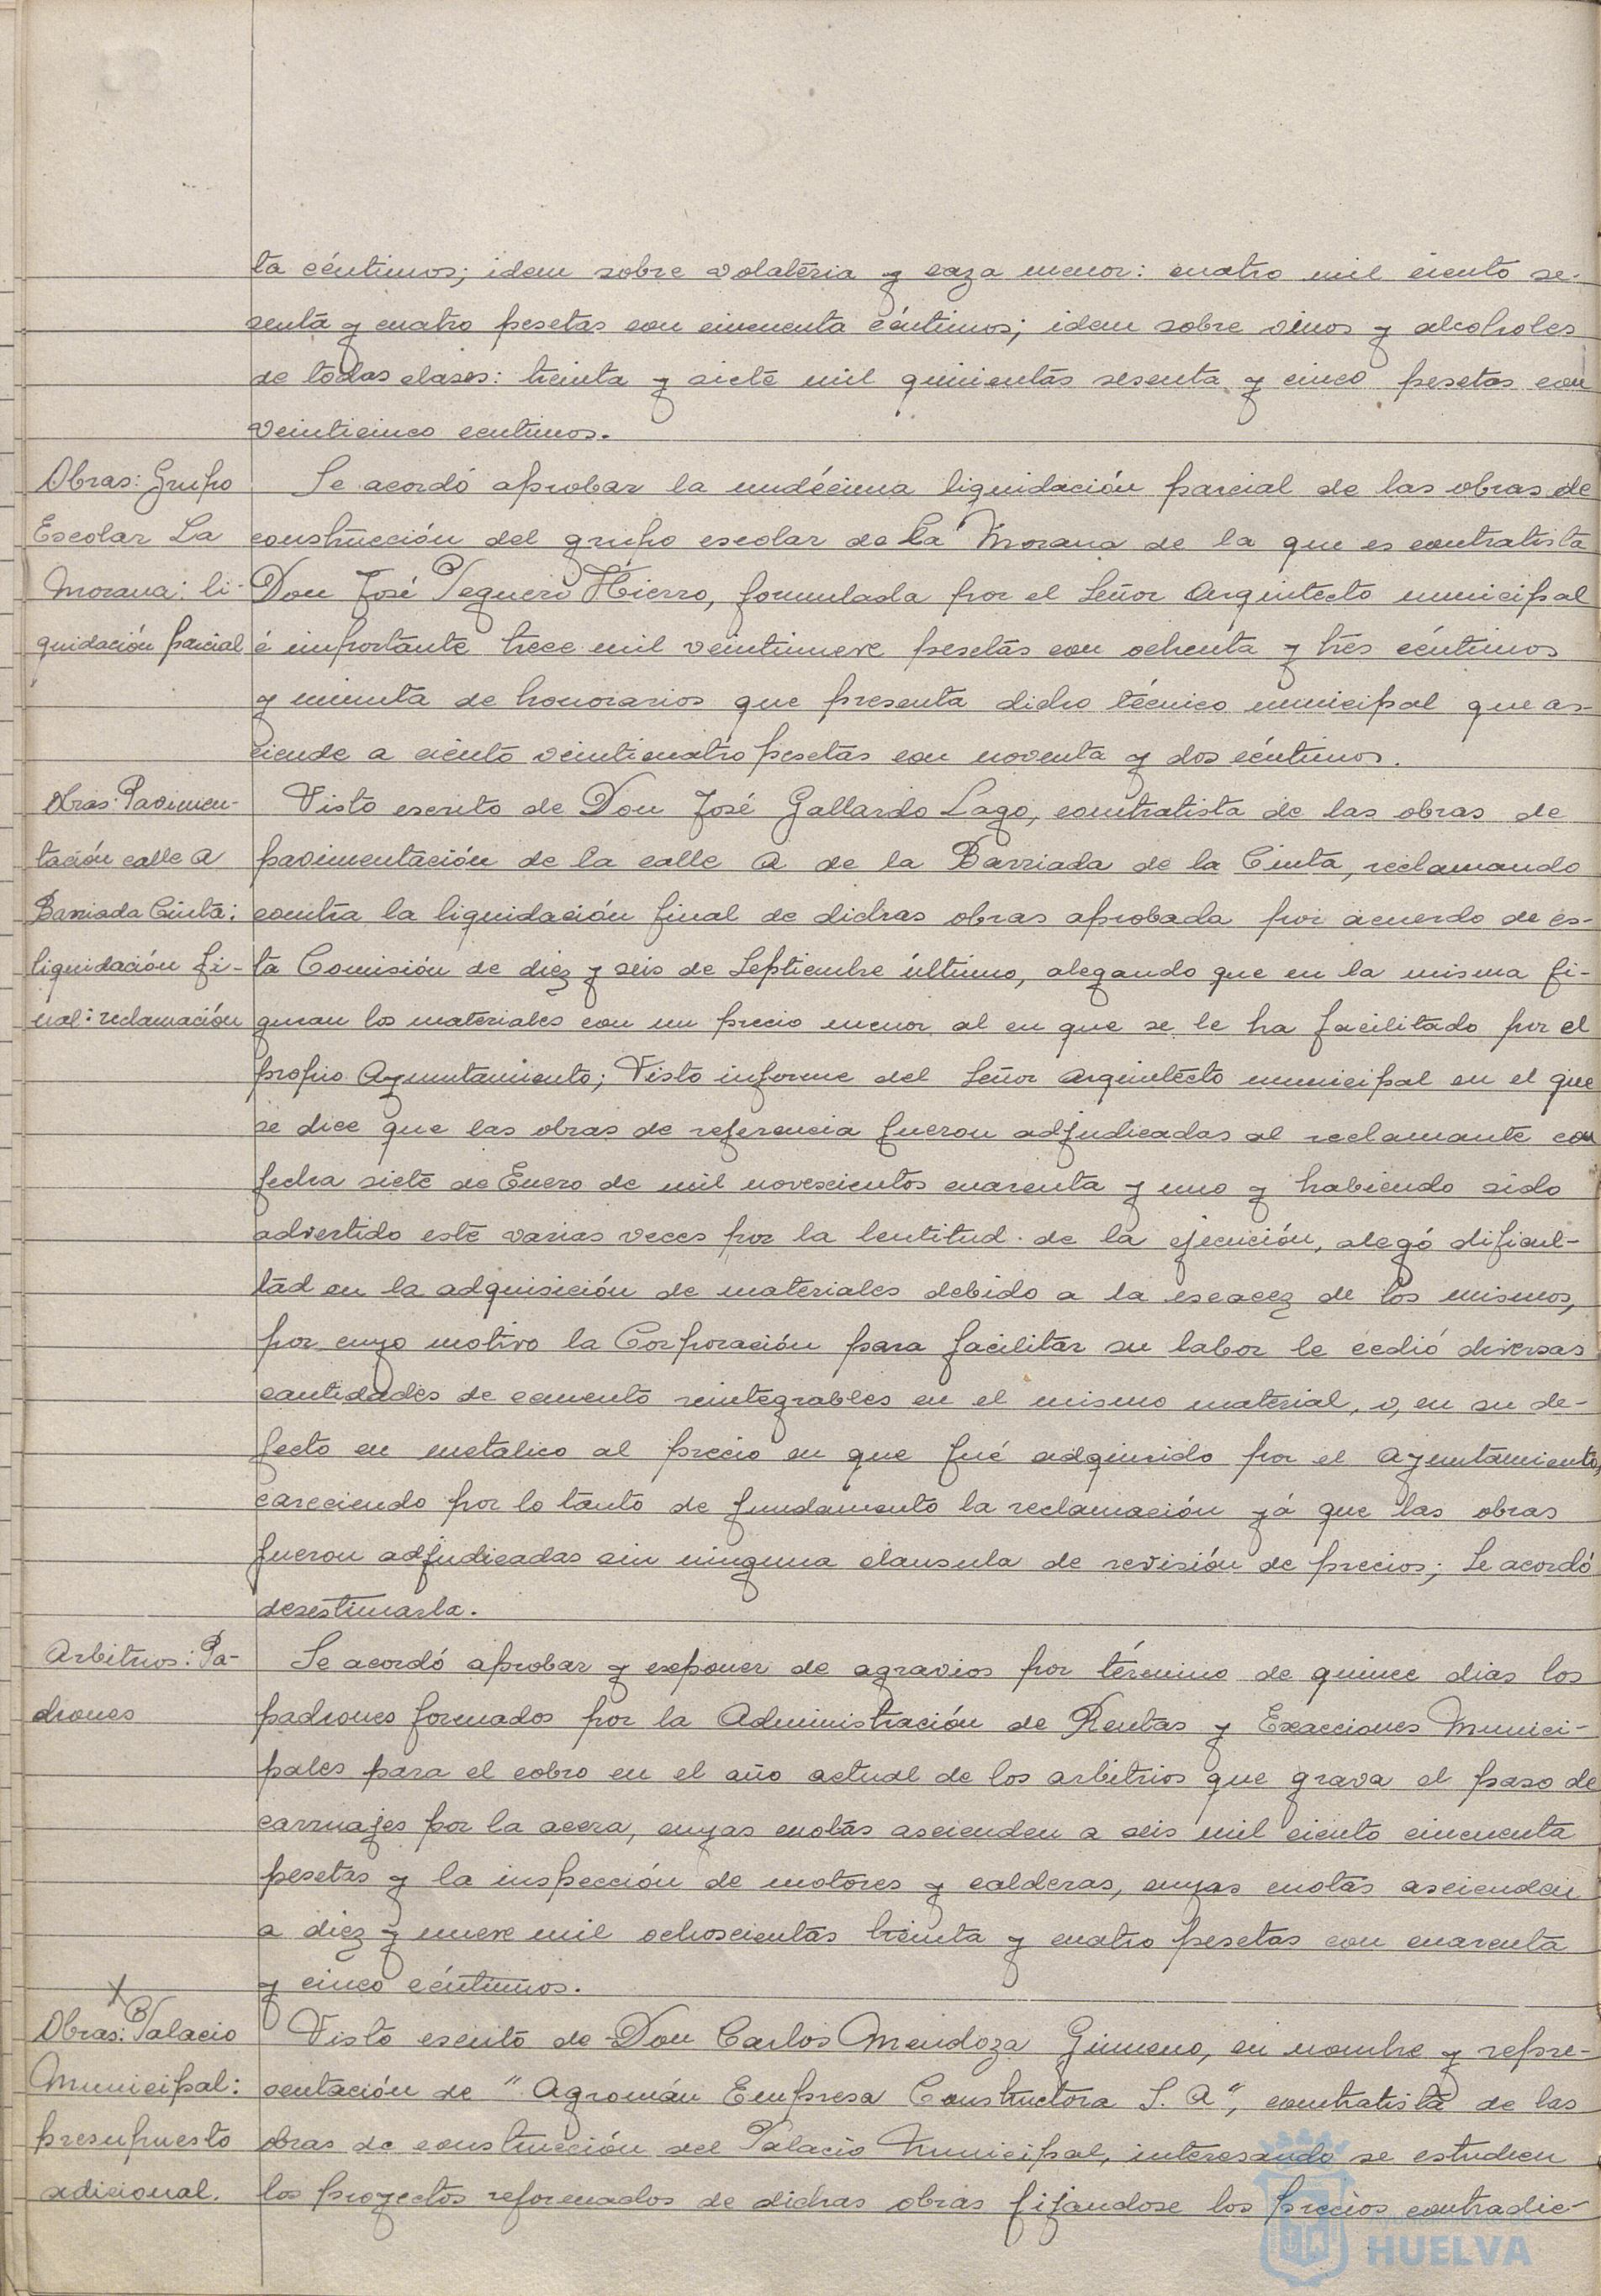 ta céntimos; idem sobre volateria y caza menor: cuatro mil ciento se-
senta y cuatro pesetas con cincuenta céntimos; idem sobre vinos y alcoholes
de todas clases: treinta y siete mil quinientas sesenta y cinco pesetas con
veinticinco centimos.
Obras: Grupo
Escolar La
Morana: li-
quidación parcial
Se acordó aprobar la undécima liquidación parcial de las obras de
construcción del grupo escolar de La Morana de la que es contratista
Don José Peguero Hierro, formulada por el Señor Arquitecto municipal
é importante trece mil veintinueve pesetas con ochenta y tres céntimos
y minuta de honorarios que presenta dicho técnico municipal que as-
ciende a ciento veinticuatro pesetas con noventa y dos céntimos.
Obras: Pavimen-
tación calle A
Barriada Cinta:
liquidación fi-
nal: reclamación
Visto escrito de Don José Gallardo Lago, contratista de las obras de
pavimentación de la calle A de la Barriada de la Cinta, reclamando
contra la liquidación final de dichas obras aprobada por acuerdo de es-
ta Comisión de diez y seis de Septiembre último, alegando que en la misma fi-
guran los materiales con un precio menor al en que se le ha facilitado por el
propio Ayuntamiento; Visto informe del Señor Arquitecto municipal en el que
se dice que las obras de referencia fueron adjudicadas al reclamante con
fecha siete de Enero de mil novescientos cuarenta y uno y habiendo sido
advertido este varias veces por la lentitud de la ejecución, alegó dificul-
tad en la adquisición de materiales debido a la escacez de los mismos,
por cuyo motivo la Corporación para facilitar su labor le cedió diversas
cantidades de cemento reintegrables en el mismo material, o, en su de-
fecto en metalico al precio en que fué adquirido por el Ayuntamiento,
careciendo por lo tanto de fundamento la reclamación yá que las obras
fueron adjudicadas sin ninguna clausula de revisión de precios; Se acordó
desestimarla.
Arbitrios: Pa-
drones
Se acordó aprobar y exponer de agravios por término de quince dias los
padrones formados por la Administración de Rentas y Exacciones Munici-
pales para el cobro en el año actual de los arbitrios que grava el paso de
carruajes por la acera, cuyas cuotas ascienden a seis mil ciento cincuenta
pesetas y la inspección de motores y calderas, cuyas cuotas ascienden
a diez y nueve mil ochoscientas treinta y cuatro pesetas con cuarenta
y cinco céntimos.
X
Obras: Palacio
Municipal:
presupuesto
adicional.
Visto escrito de Don Carlos Mendoza Gimeno, en nombre y repre-
sentación de "Agromán Empresa Constructora S. A", contratista de las
obras de construcción del Palacio Municipal, interesando se estudien
los proyectos reformados de dichas obras fijandose los precios contradic-
HUELVA